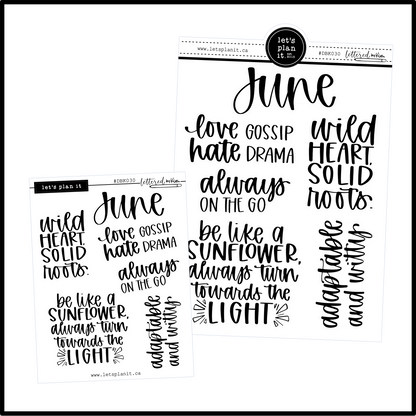 let's
plan
it.
www.letsplanit.ca
#DBK030
June
love GOSSIP
hate DRAMA
wild
HEART,
SOLID
roots.
always
ON THE GO
be like a
SUNFLOWER,
always turn
towards the
LIGHT
adaptable
and witty
let's plan it
#DBK030
June
wild
HEART,
SOLID
roots.
love GOSSIP
hate DRAMA
always
ON THE GO
be like a
SUNFLOWER,
always turn
towards the
LIGHT
adaptable
and witty
www.letsplanit.ca